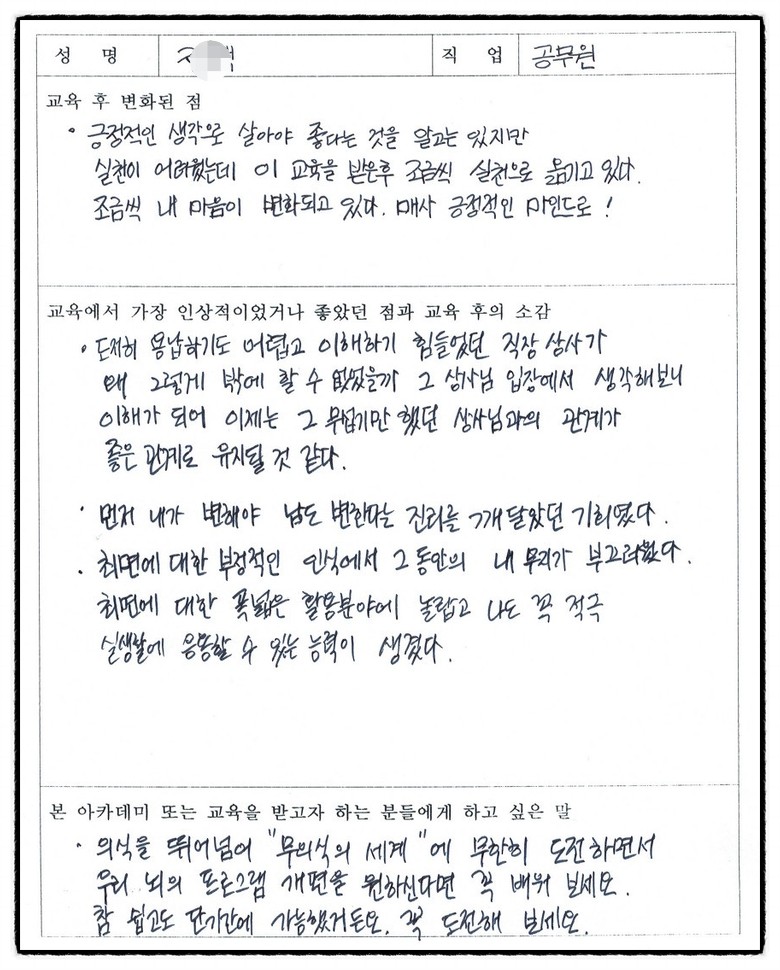 성 명 직 업 공무원
교육 후 변화된 점
• 긍정적인 생각으로 살아야 좋다는 것을 알고는 있지만
실천이 어려웠는데 이 교육을 받은후 조금씩 실천으로 옮기고 있다.
조금씩 내 마음이 변화되고 있다. 매사 긍정적인 마인드로 !
교육에서 가장 인상적이었거나 좋았던 점과 교육 후의 소감
• 도저히 용납하기도 어렵고 이해하기 힘들었던 직장 상사가
왜 그렇게 밖에 할 수 없었을까 그 상사님 입장에서 생각해보니
이해가 되어 이제는 그 무섭기만 했던 상사님과의 관계가
좋은 관계로 유지될 것 같다.
• 먼저 내가 변해야 남도 변한다는 진리를 깨달았던 기회였다.
• 최면에 대한 부정적인 인식에서 그동안의 내 무지가 부끄러웠다.
최면에 대한 폭넓은 활용분야에 놀랍고 나도 꼭 적극
실생활에 응용할 수 있는 능력이 생겼다.
본 아카데미 또는 교육을 받고자 하는 분들에게 하고 싶은 말
• 의식을 뛰어넘어 "무의식의 세계"에 무한히 도전하면서
우리 뇌의 프로그램 개편을 원하신다면 꼭 배워 보세요.
참 쉽고도 단기간에 가능했거든요. 꼭 도전해 보세요.